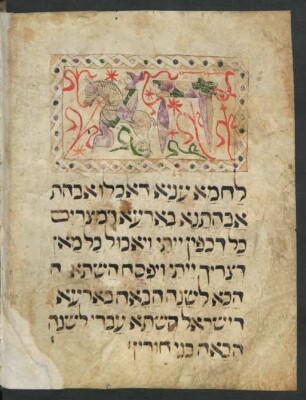 הא
לחמא עניא דאכלו אבהת
אבהתנא בארעא דמצרים
כל דכפין ייתי ויאכול כל מאן
דצריך ייתי ויפסח השתא ה
הכא לשנה הבאה בארעא
דישראל השתא עבדי לשנה
הבאה בני חורין